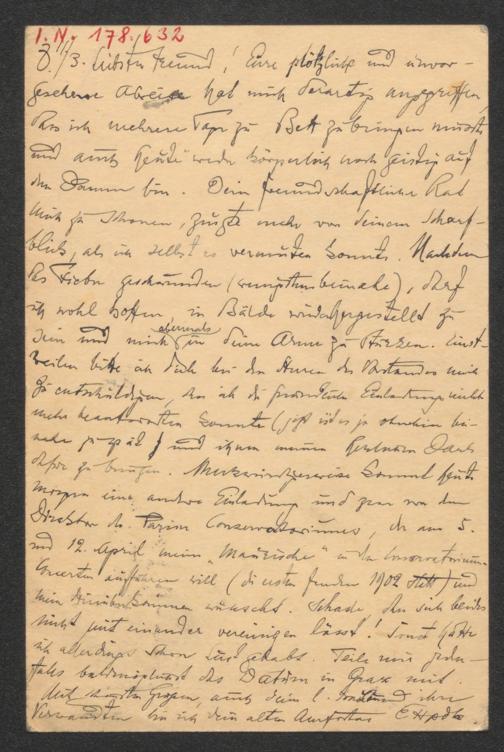 I. N. 178.632
8./3. Liebster Freund! Eure plötzliche und unvor-
gesehene Abreise hat mich derartig angegriffen,
dass ich mehrere Tage zu Bett zubringen musste
und auch heute weder körperlich noch geistig auf
dem Damm bin. Dein freundschaftlicher Rat
mich zu schonen, zeugte mehr von deinem Scharf-
blick, als ich selbst es vermuten konnte. Nachdem
das Fieber geschwunden (wenigstens beinahe), darf
ich wohl hoffen, in Bälde wiederhergestellt zu
sein und mich abermals in deine Arme zu stürzen. Einst-
weilen bitte ich dich bei den Herren des Vorstandes mich
zu entschuldigen, dass ich die freundliche Einladung nicht
mehr beantworten konnte (jetzt ist es ja ohnehin bei-
nahe zu spät) und ihnen meinen Dank
dafür zu bringen. Merkwürdigerweise kommt heute
morgen eine andere Einladung und zwar von dem
Direktor des Pariser Conservatoriums, der am 5.
und 12. April mein "Mauzische" in den Conservatoriums-
Concerten aufführen will (die ersten fanden 1902 statt) und
mein wünscht. Schade, dass sich beides
nicht mit einander vereinigen lässt! Sonst hätte
ich allerdings schon Lust gehabt. Teile mir jeden-
falls baldmöglichst das Datum in Graz mit.
Mit Grüssen, auch dein l. und ihre
Verwandten bin ich dein alter Amfortas